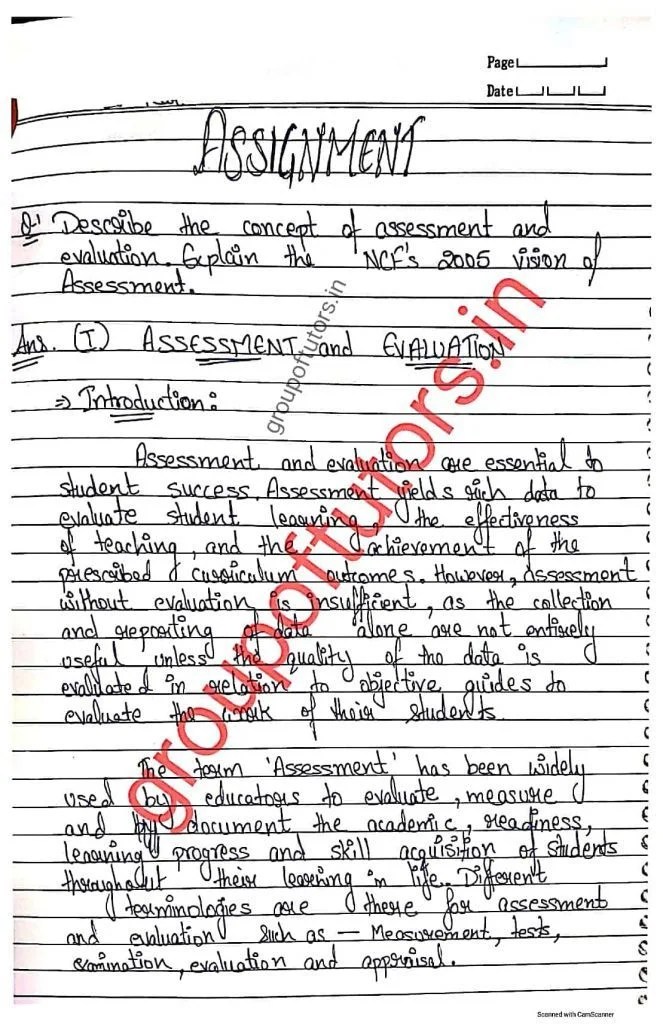 Page
Date
ASSIGNMENT
Q.1 Describe the concept of assessment and
evaluation. Explain the NCF's 2005 vision of
Assessment.
Ans. (I) ASSESSMENT and EVALUATION
⇒ Introduction:
Assessment and evaluation are essential to
student success. Assessment yields rich data to
evaluate student learning, the effectiveness
of teaching, and the achievement of the
prescribed curriculum outcomes. However, assessment
without evaluation is insufficient, as the collection
and reporting of data alone are not entirely
useful unless the quality of the data is
evaluated in relation to objective guides to
evaluate the work of their students.
The term 'Assessment' has been widely
used by educators to evaluate, measure
and document the academic, readiness,
learning progress and skill acquisition of students
throughout their learning in life. Different
terminologies are there for assessment
and evaluation such as - Measurement, tests,
examination, evaluation and appraisal.
groupoftutors.in
groupoftutors.in
Scanned with CamScanner